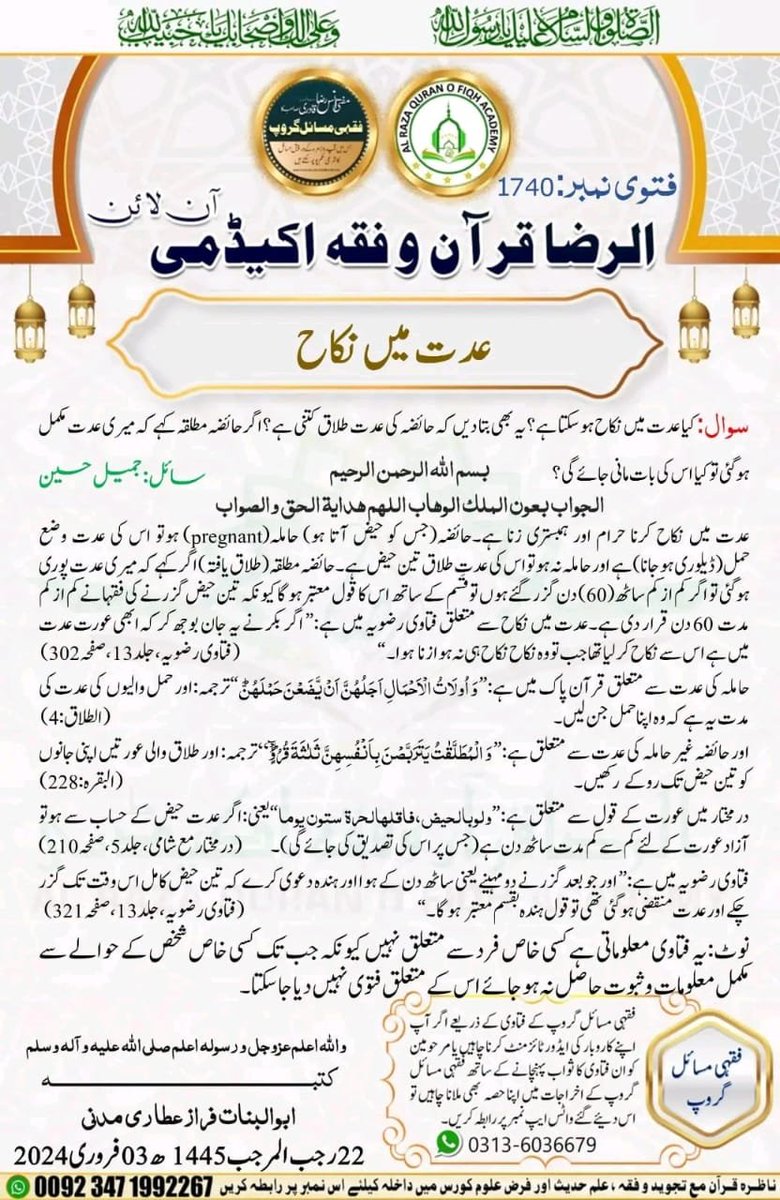 الصلوٰۃ والسلام علیک یارسول اللہ
وعلیٰ الک واصحابک یا حبیب اللہ
مفتی انس رضا قادری
فقہی مسائل گروپ
AL RAZA QURAN O FIQH ACADEMY
فتوی نمبر: 1740
آن لائن
الرضا قرآن و فقہ اکیڈمی
عدت میں نکاح
سوال: کیا عدت میں نکاح ہو سکتا ہے؟ یہ بھی بتادیں کہ حائضہ کی عدت طلاق کتنی ہے؟ اگر حائضہ مطلقہ کہے کہ میری عدت مکمل
ہو گئی تو کیا اس کی بات مانی جائے گی؟
سائل: جمیل حسین
بسم اللہ الرحمن الرحیم
الجواب بعون الملک الوھاب اللھم ھدایة الحق والصواب
عدت میں نکاح کرنا حرام اور ہمبستری زنا ہے۔ حائضہ (جس کو حیض آتا ہو) حاملہ (pregnant) ہو تو اس کی عدت وضع
حمل (ڈیلوری ہو جانا) ہے اور حاملہ نہ ہو تو اس کی عدتِ طلاق تین حیض ہے۔ حائضہ مطلقہ (طلاق یافتہ) اگر کہے کہ میری عدت پوری
ہو گئی تو اگر کم از کم ساٹھ (60) دن گزر گئے ہوں تو قسم کے ساتھ اس کا قول معتبر ہو گا کیونکہ تین حیض گزرنے کی فقہا نے کم از کم
مدت 60 دن قرار دی ہے۔ عدت میں نکاح سے متعلق فتاوی رضویہ میں ہے: ”اگر بکر نے یہ جان بوجھ کر کہ ابھی عورت عدت
میں ہے اس سے نکاح کر لیا تھا جب تو وہ نکاح نکاح ہی نہ ہوا زنا ہوا۔“ (فتاوی رضویہ، جلد 13، صفحہ 302)
حاملہ کی عدت سے متعلق قرآن پاک میں ہے: ”وَ اُولَاتُ الْاَحْمَالِ اَجَلُهُنَّ اَنْ یَّضَعْنَ حَمْلَهُنَّ“ ترجمہ: اور حمل والیوں کی عدت کی
مدت یہ ہے کہ وہ اپنا حمل جن لیں۔ (الطلاق: 4)
اور حائضہ غیر حاملہ کی عدت سے متعلق ہے: ”وَ الْمُطَلَّقٰتُ یَتَرَبَّصْنَ بِاَنْفُسِهِنَّ ثَلٰثَةَ قُرُوْٓءٍ“ ترجمہ: اور طلاق والی عورتیں اپنی جانوں
کو تین حیض تک روکے رکھیں۔ (البقرہ: 228)
در مختار میں عورت کے قول سے متعلق ہے: ”ولو بالحیض، فاقلها لحرة ستون یوما“ یعنی: اگر عدت حیض کے حساب سے ہو تو
آزاد عورت کے لئے کم سے کم مدت ساٹھ دن ہے (جس پر اس کی تصدیق کی جائے گی)۔ (در مختار مع شامی، جلد 5، صفحہ 210)
فتاوی رضویہ میں ہے: ”اور جو بعد گزرنے دو مہینے یعنی ساٹھ دن کے ہوا اور ہندہ دعوی کرے کہ تین حیض کامل اس وقت تک گزر
چکے اور عدت منقضی ہو گئی تھی تو قول ہندہ بقسم معتبر ہو گا۔“ (فتاوی رضویہ، جلد 13، صفحہ 321)
نوٹ: یہ فتاوی معلوماتی ہے کسی خاص فرد سے متعلق نہیں کیونکہ جب تک کسی خاص شخص کے حوالے سے
مکمل معلومات و ثبوت حاصل نہ ہو جائے اس کے متعلق فتویٰ نہیں دیا جا سکتا۔
واللہ اعلم عزوجل ورسولہ اعلم صلی اللہ علیہ وآلہ وسلم
کتبــــــــــــہ
ابو البنات فراز عطاری مدنی
22 رجب المرجب 1445 ھ 03 فروری 2024
فقہی مسائل گروپ کے فتاوی کے ذریعے اگر آپ
اپنے کاروبار کی ایڈورٹائزمنٹ کرنا چاہیں یا مرحومین
کو ان فتاوی کا ثواب پہنچانے کے ساتھ فقہی مسائل
گروپ کے اخراجات میں اپنا حصہ بھی ملانا چاہیں تو
اس دیئے گئے واٹس ایپ نمبر پر رابطہ کریں۔
0313-6036679
فقہی مسائل
گروپ
ناظرہ قرآن مع تجوید و فقہ، علم حدیث اور فرض علوم کورس میں داخلہ کیلئے اس نمبر پر رابطہ کریں 0092 347 1992267